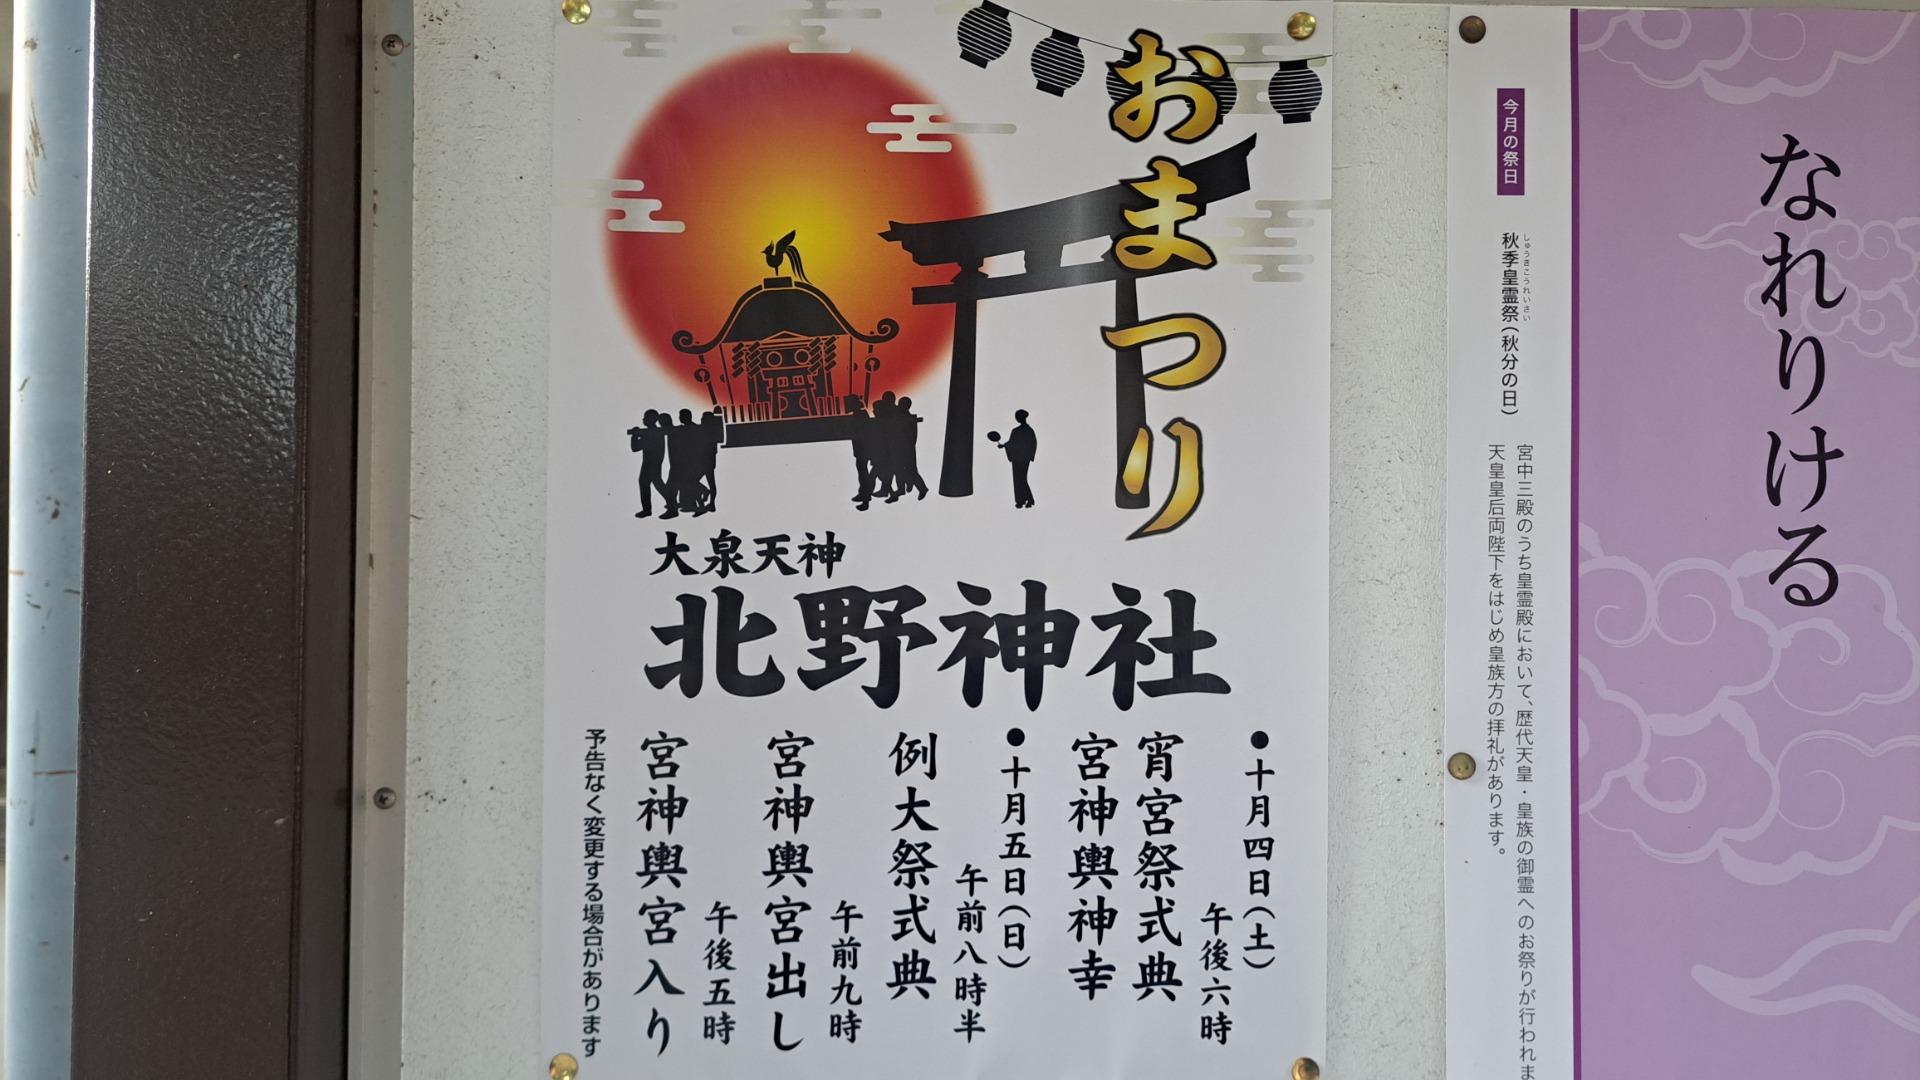 おまつり
大泉天神
北野神社
●十月四日(土)
午後六時
宵宮祭式典
宮神輿神幸
●十月五日(日)
午前八時半
例大祭式典
午前九時
宮神輿宮出し
午後五時
宮神輿宮入り
予告なく変更する場合があります
なれりける
今月の祭日
しゅうきこうれいさい
秋季皇霊祭(秋分の日)
宮中三殿のうち皇霊殿において、歴代天皇・皇族の御霊へのお祭りが行われま
天皇皇后両陛下をはじめ皇族方の拝礼があります。